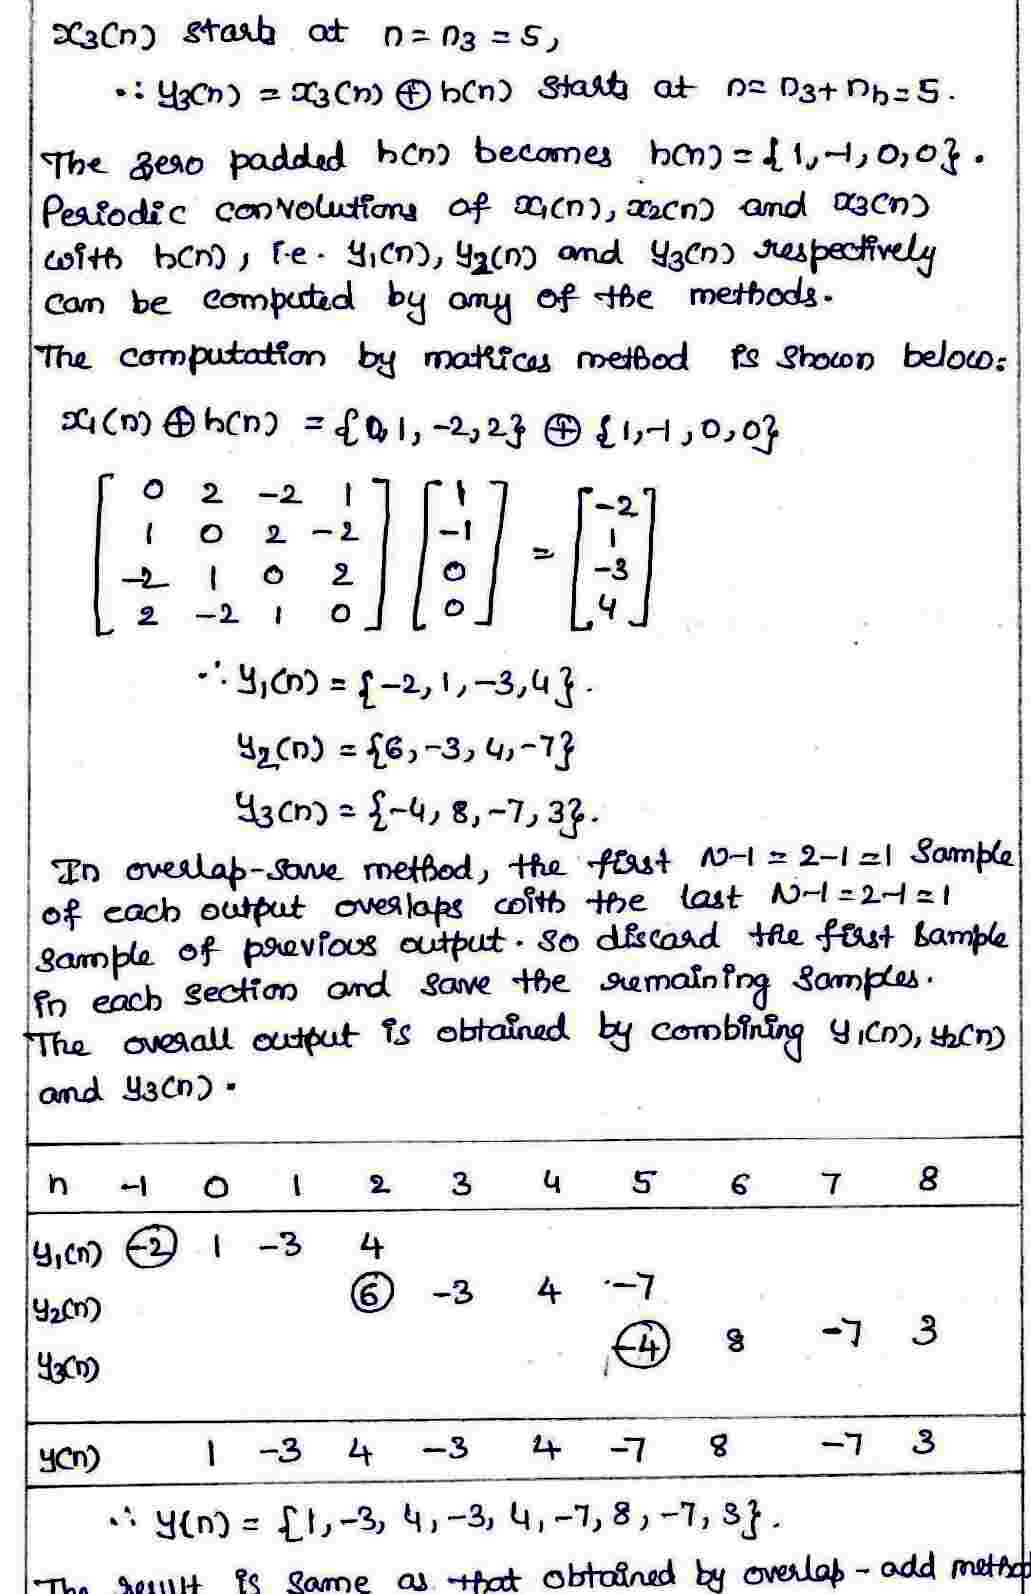 x₃(n) starts at n = n₃ = 5,
∴ y₃(n) = x₃(n) ⊕ h(n) starts at n = n₃ + nₕ = 5.
The zero padded h(n) becomes h(n) = {1, -1, 0, 0}.
Periodic convolutions of x₁(n), x₂(n) and x₃(n)
with h(n), i.e. y₁(n), y₂(n) and y₃(n) respectively
can be computed by any of the methods.
The computation by matrices method is shown below:
x₁(n) ⊕ h(n) = {0, 1, -2, 2} ⊕ {1, -1, 0, 0}
0 2 -2 1 1 -2
1 0 2 -2 -1 = 1
-2 1 0 2 0 -3
2 -2 1 0 0 4
∴ y₁(n) = {-2, 1, -3, 4}.
y₂(n) = {6, -3, 4, -7}
y₃(n) = {-4, 8, -7, 3}.
In overlap-save method, the first N-1 = 2-1 = 1 sample
of each output overlaps with the last N-1 = 2-1 = 1
sample of previous output. So discard the first sample
in each section and save the remaining samples.
The overall output is obtained by combining y₁(n), y₂(n)
and y₃(n).
n -1 0 1 2 3 4 5 6 7 8
y₁(n) -2 1 -3 4
y₂(n) 6 -3 4 -7
y₃(n) -4 8 -7 3
y(n) 1 -3 4 -3 4 -7 8 -7 3
∴ y(n) = {1, -3, 4, -3, 4, -7, 8, -7, 3}.
The result is same as that obtained by overlap-add method